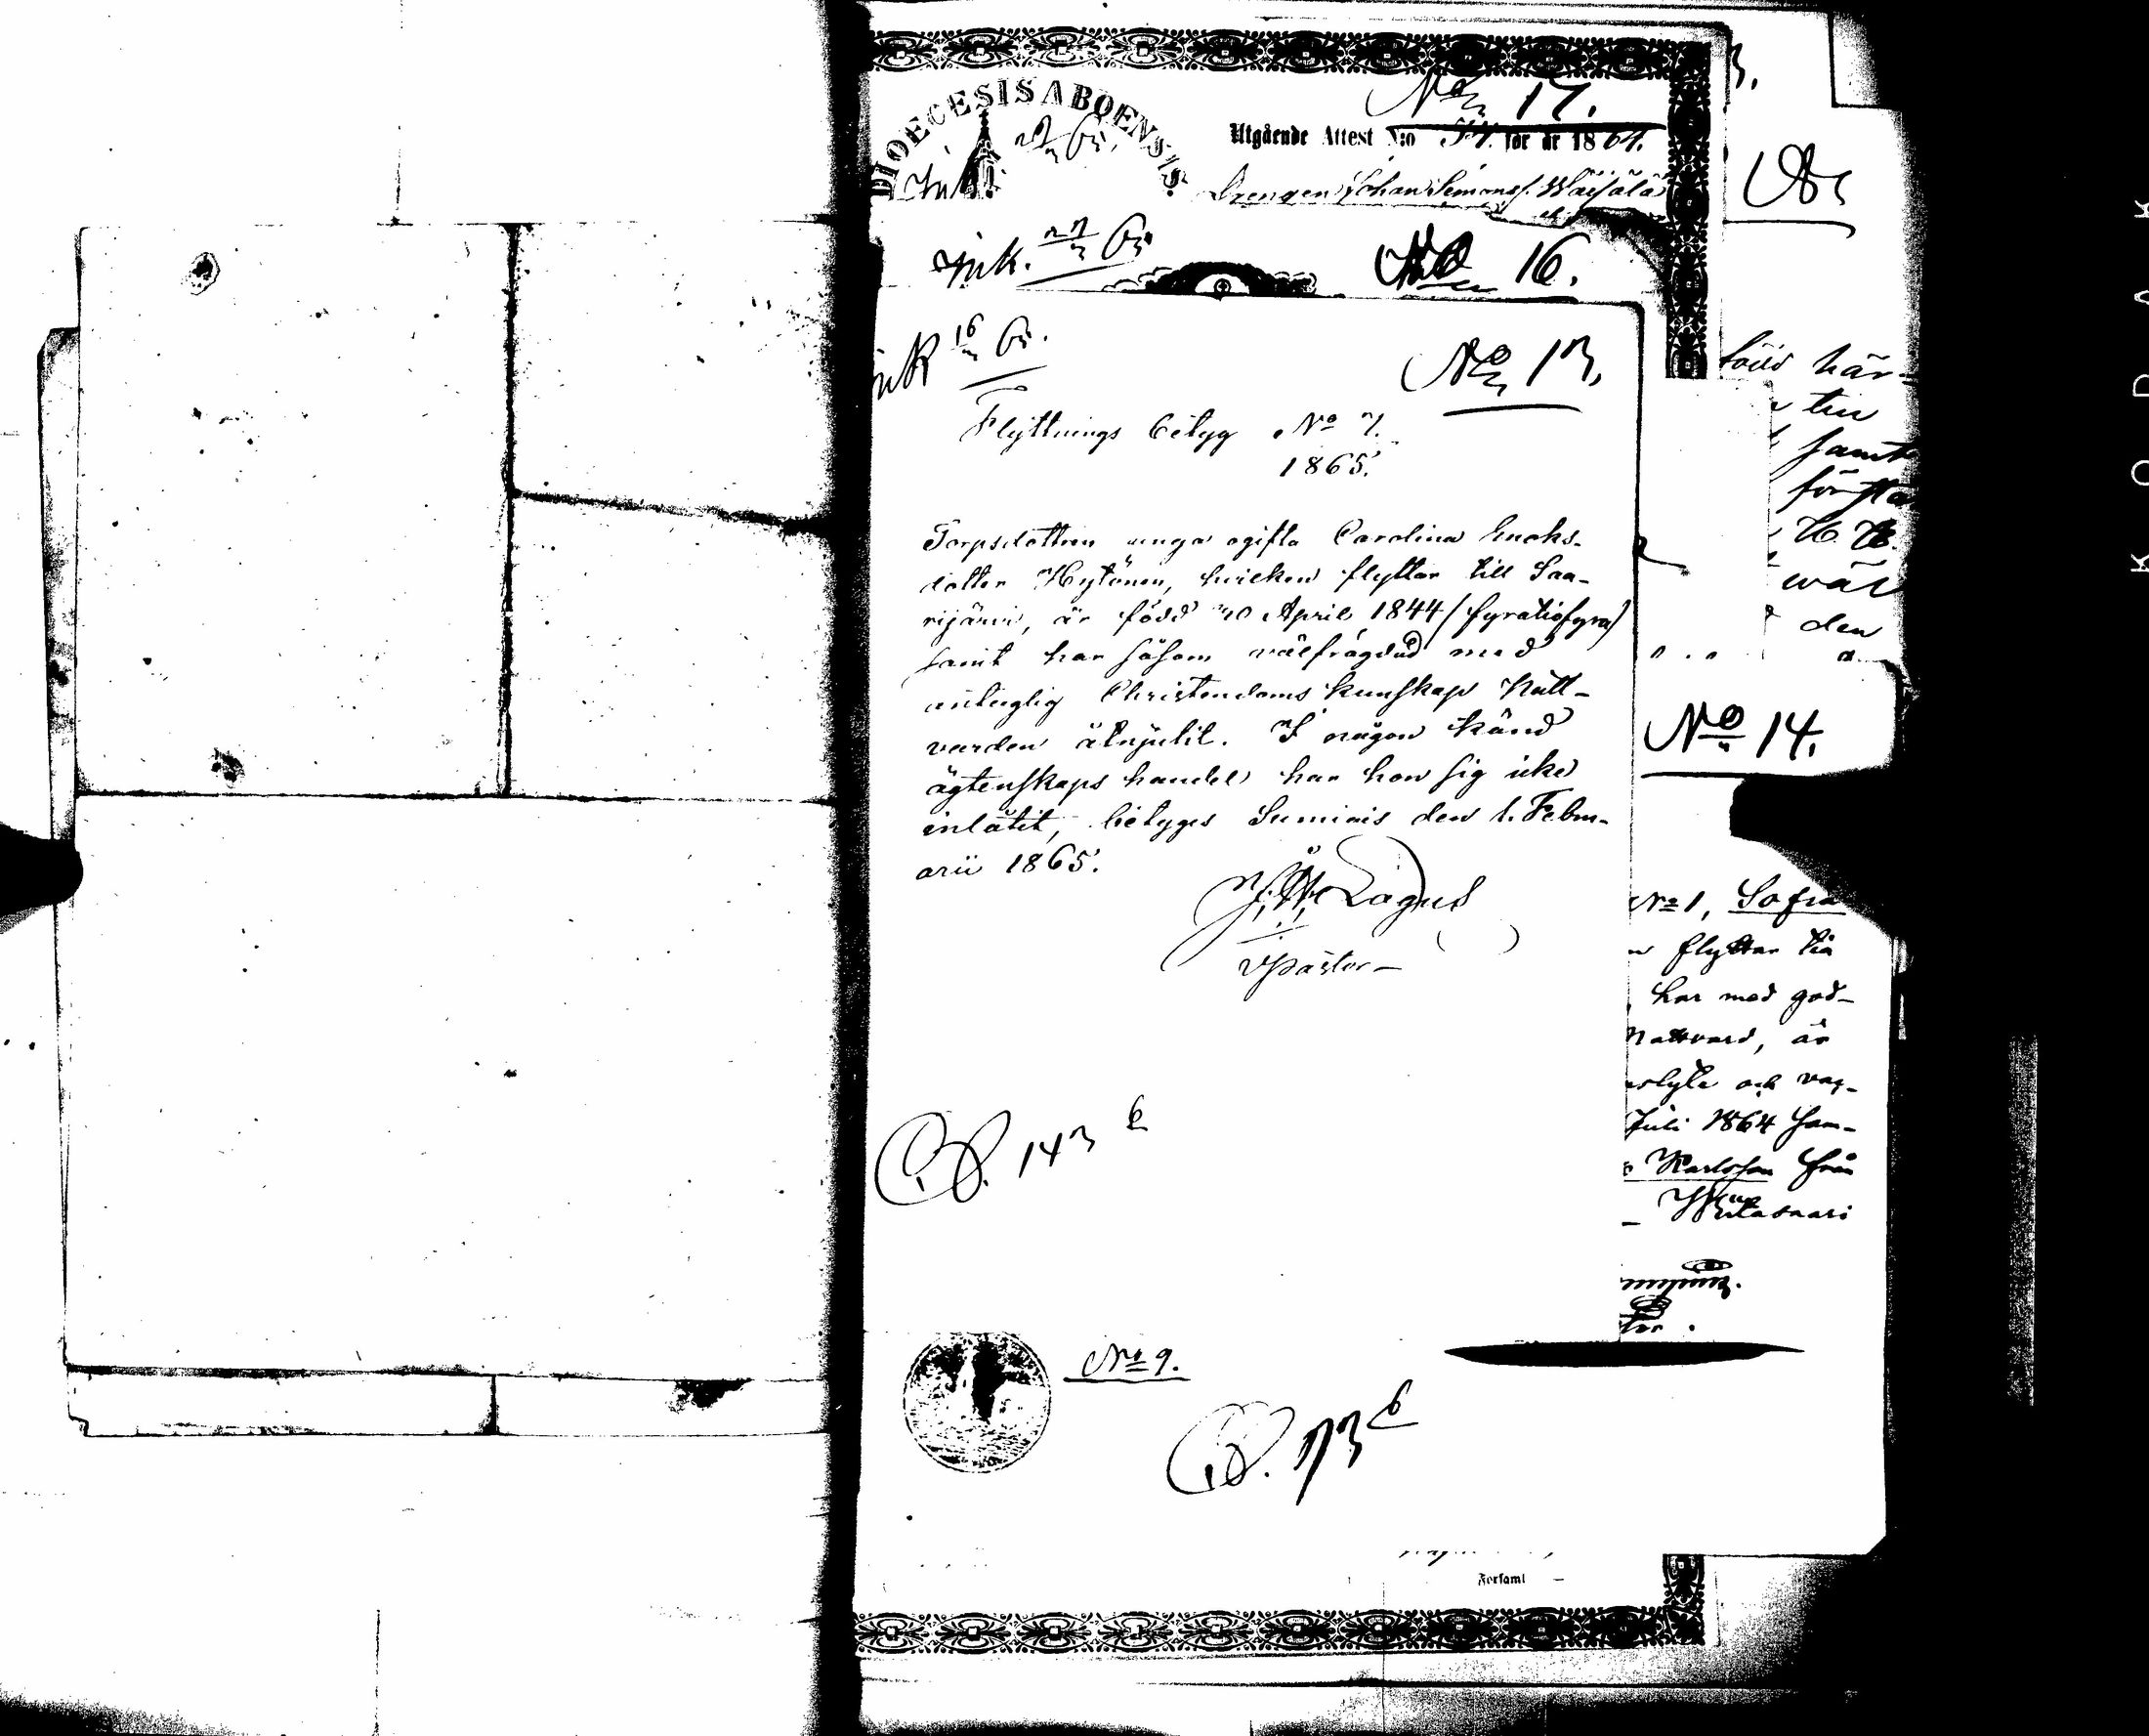 DIOECESIS ABOENSIS.
No 17.
Utgående Attest N:o 54. för år 1864.
Drengen Johan Simonss. Wäisälä
Ink. 27/3 65
No 16.
ink 16/3 65.
No 13.
Flyttnings betyg No 7.
1865.
Torpsdottren unga ogifta Carolina Enoks-
dotter Hytönen, hvilken flyttar till Saa-
rijärvi, är född 20 April 1844 (fyratiofyra)
samt har såsom välfrägdad med
antaglig Christendoms kunskap Natt-
varden åtnjutit. I någon känd
ägtenskaps handel har hon sig icke
inlåtit, betyges Sumiais den 1. Febru-
arii 1865.
Lagus
v Pastor
143 b
No 9.
173 b
Forsaml
här-
samt
första
wäl
den
No 14.
No 1, Sofia
flyttar till
har med god-
Nattvard, är
och vac-
Juli 1864 sam-
Karlsson från
Wiitasaari
KODAK